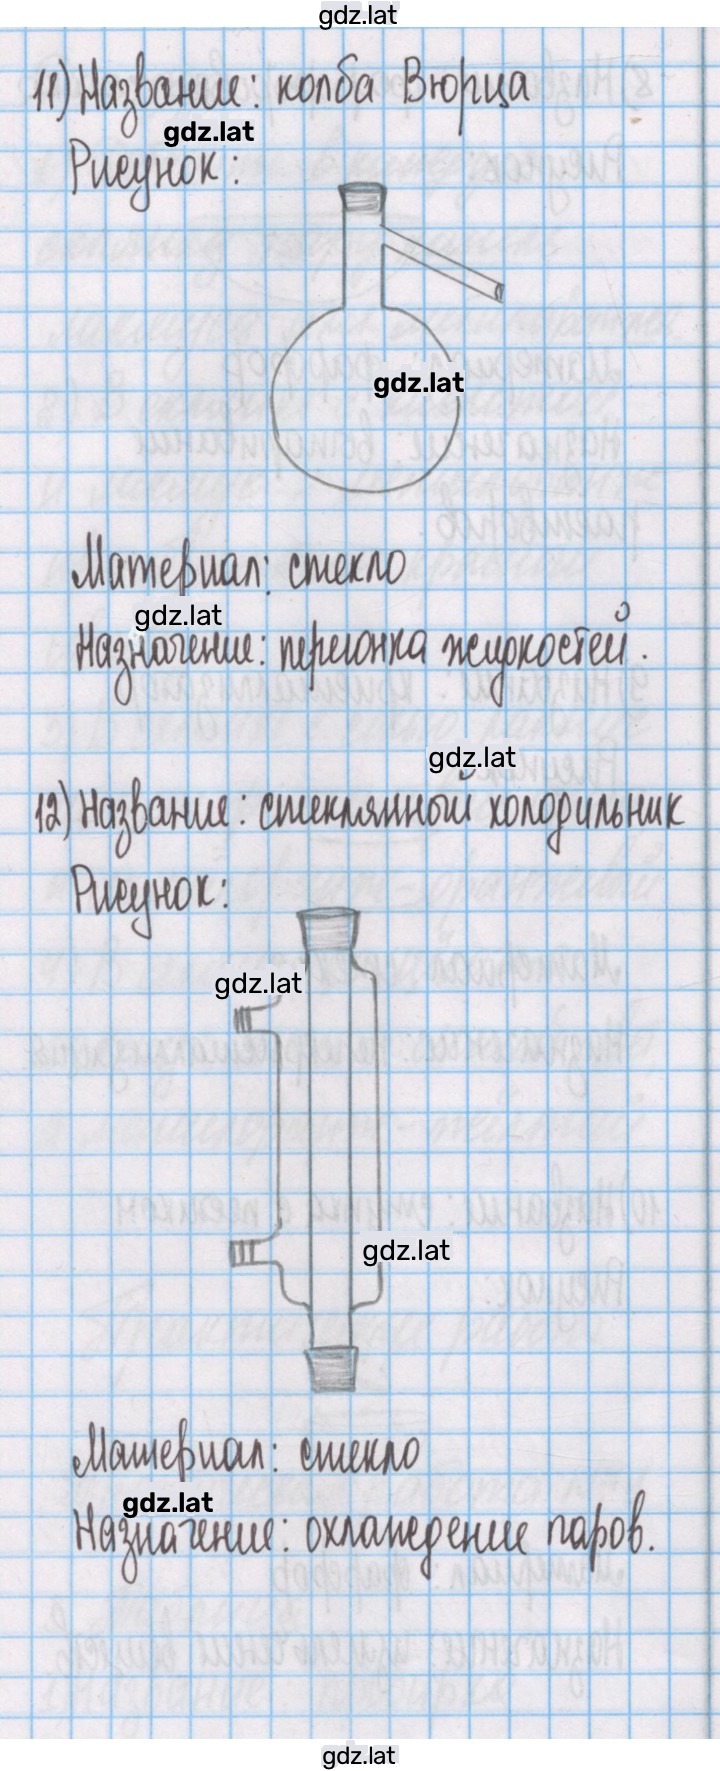 gdz.lat
11) Название: колба Вюрца
gdz.lat
Рисунок:
gdz.lat
Материал: стекло
gdz.lat
Назначение: перегонка жидкостей.
gdz.lat
12) Название: стеклянный холодильник
Рисунок:
gdz.lat
gdz.lat
Материал: стекло
gdz.lat
Назначение: охлаждение паров.
gdz.lat